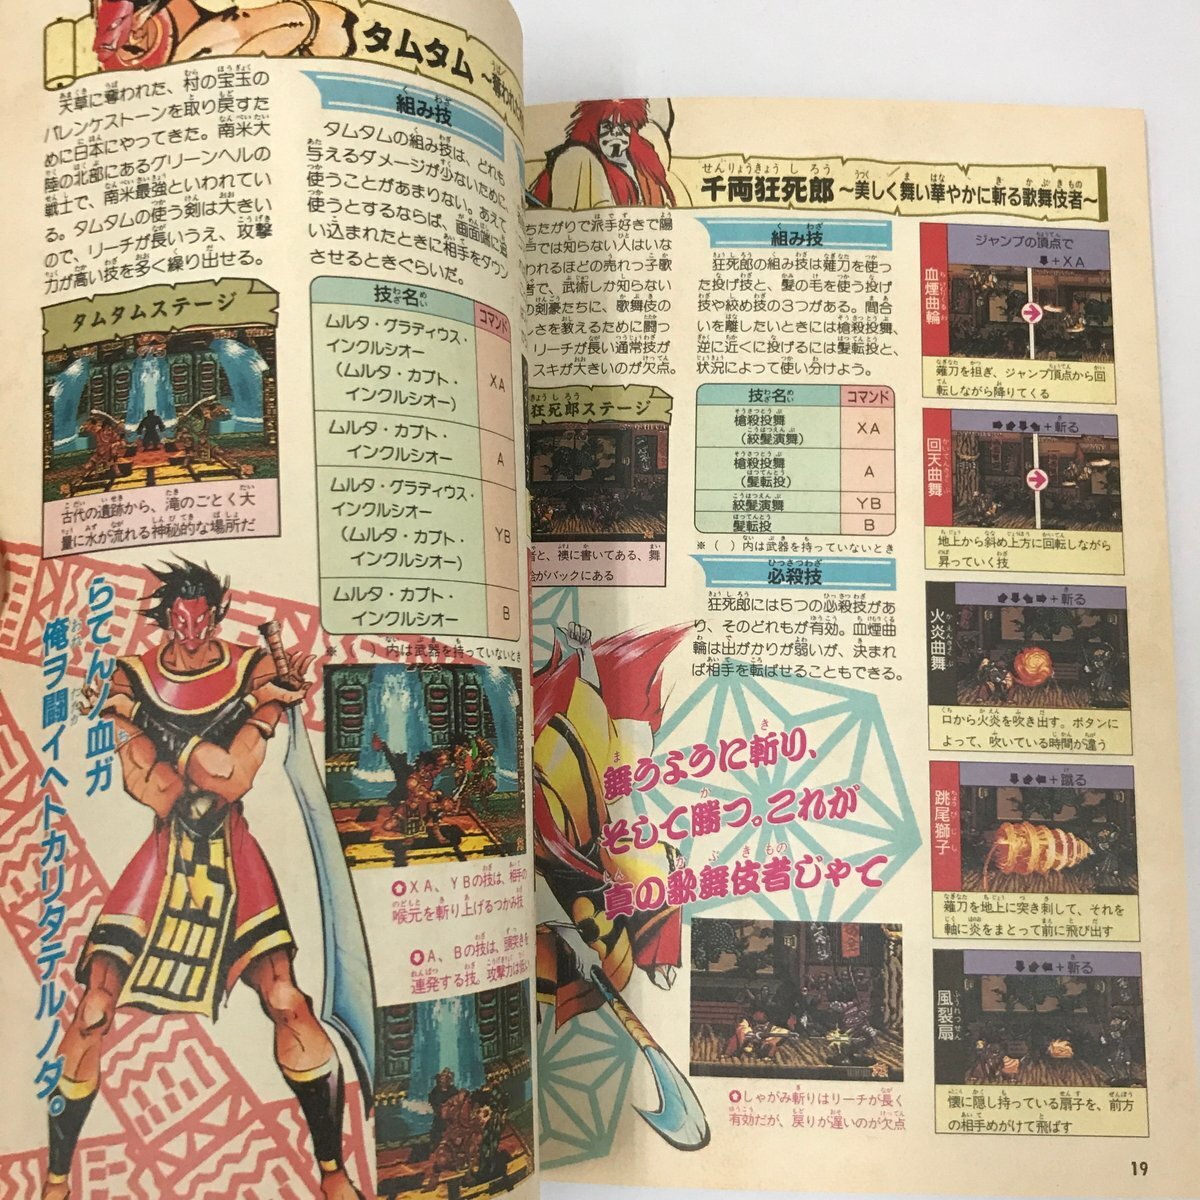 タムタム
天草に奪われた、村の宝玉の
パレンケストーンを取り戻すた
めに日本にやってきた。南米大
陸の北部にあるグリーンヘルの
戦士で、南米最強といわれてい
る。タムタムの使う剣は大きい
ので、リーチが長いうえ、攻撃
力が高い技を多く繰り出せる。
タムタムステージ
古代の遺跡から、滝のごとく大
量に水が流れる神秘的な場所だ
組み技
タムタムの組み技は、どれも
与えるダメージが少ないために、
使うことがあまりない。あえて
使うとするならば、画面端に追
い込まれたときに相手をダウン
させるときぐらいだ。
技名 コマンド
ムルタ・グラディウス・
インクルシオー
(ムルタ・カプト・
インクルシオー)
XA
ムルタ・カプト・
インクルシオー
A
ムルタ・グラディウス・
インクルシオー
(ムルタ・カプト・
インクルシオー)
YB
ムルタ・カプト・
インクルシオー
B
※( )内は武器を持っていないとき
らてんノ血ガ
俺ヲ闘イヘトカリタテルノダ。
✪XA、YBの技は、相手の
喉元を斬り上げるつかみ技
✪A、Bの技は、頭突きを
連発する技。攻撃力は低い
千両狂死郎 〜美しく舞い華やかに斬る歌舞伎者〜
ちたがりで派手好きで陽
では知らない人はいな
われるほどの売れっ子歌
で、武術しか知らない
の剣豪たちに、歌舞伎の
しさを教えるために闘っ
リーチが長い通常技が
スキが大きいのが欠点。
狂死郎ステージ
と、襖に書いてある、舞
がバックにある
組み技
狂死郎の組み技は薙刀を使っ
た投げ技と、髪の毛を使う投げ
技や絞め技の3つがある。間合
いを離したいときには槍殺投舞、
逆に近くに投げるには髪転投と、
状況によって使い分けよう。
技名 コマンド
槍殺投舞
(絞髪演舞)
XA
槍殺投舞
(髪転投)
A
絞髪演舞 YB
髪転投 B
※( )内は武器を持っていないとき
必殺技
狂死郎には5つの必殺技があ
り、そのどれもが有効。血煙曲
輪は出がかりが弱いが、決まれ
ば相手を転ばせることもできる。
舞うように斬り、
そして勝つ。これが
真の歌舞伎者じゃて
✪しゃがみ斬りはリーチが長く
有効だが、戻りが遅いのが欠点
血煙曲輪
ジャンプの頂点で
⬇+XA
薙刀を担ぎ、ジャンプ頂点から回
転しながら降りてくる
回天曲舞
+斬る
地上から斜め上方に回転しながら
昇っていく技
火炎曲舞
+斬る
口から火炎を吹き出す。ボタンに
よって、吹いている時間が違う
跳尾獅子
+蹴る
薙刀を地上に突き刺して、それを
軸に炎をまとって前に飛び出す
風裂扇
+斬る
懐に隠し持っている扇子を、前方
の相手めがけて飛ばす
19